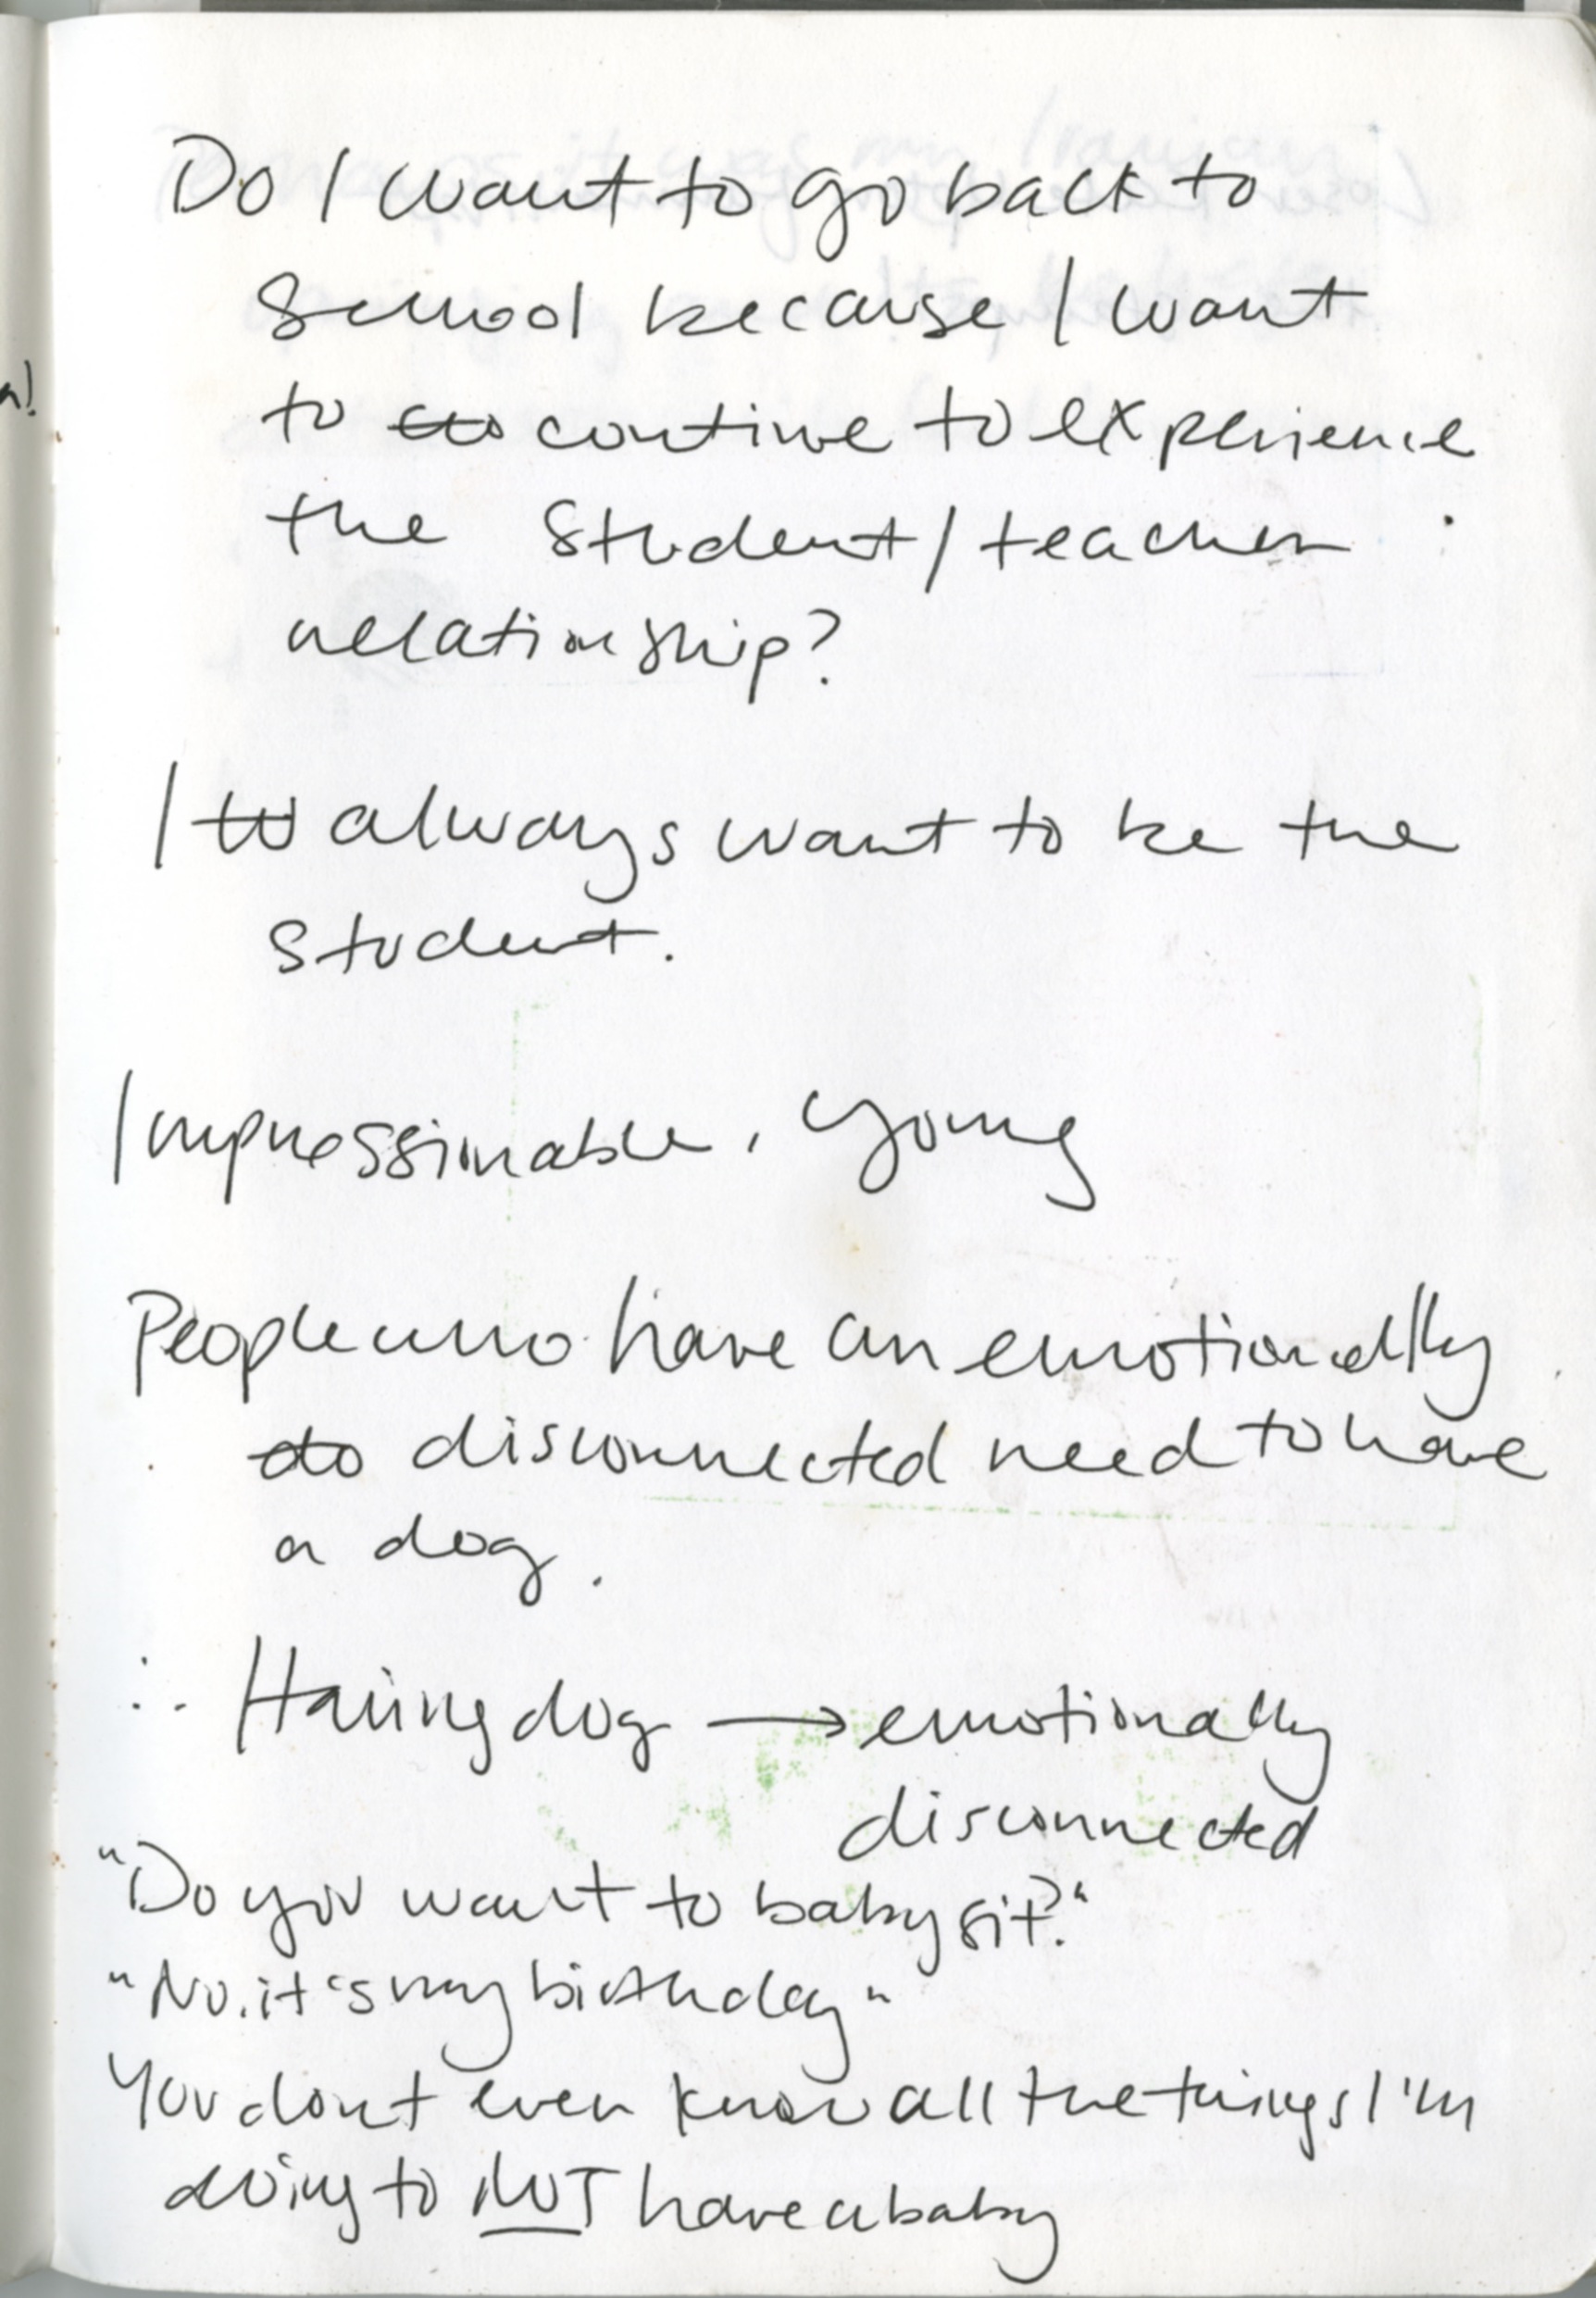 Do I want to go back to
School because I want
to continue to experience
the student/teacher
relationship?
I always want to be the
student.
Impressionable, young
People who have an emotionally
disconnected need to have
a dog.
∴ Having dog → emotionally
disconnected
"Do you want to babysit?"
"No, it's my birthday"
You dont even know all the things I'm
doing to NOT have a baby